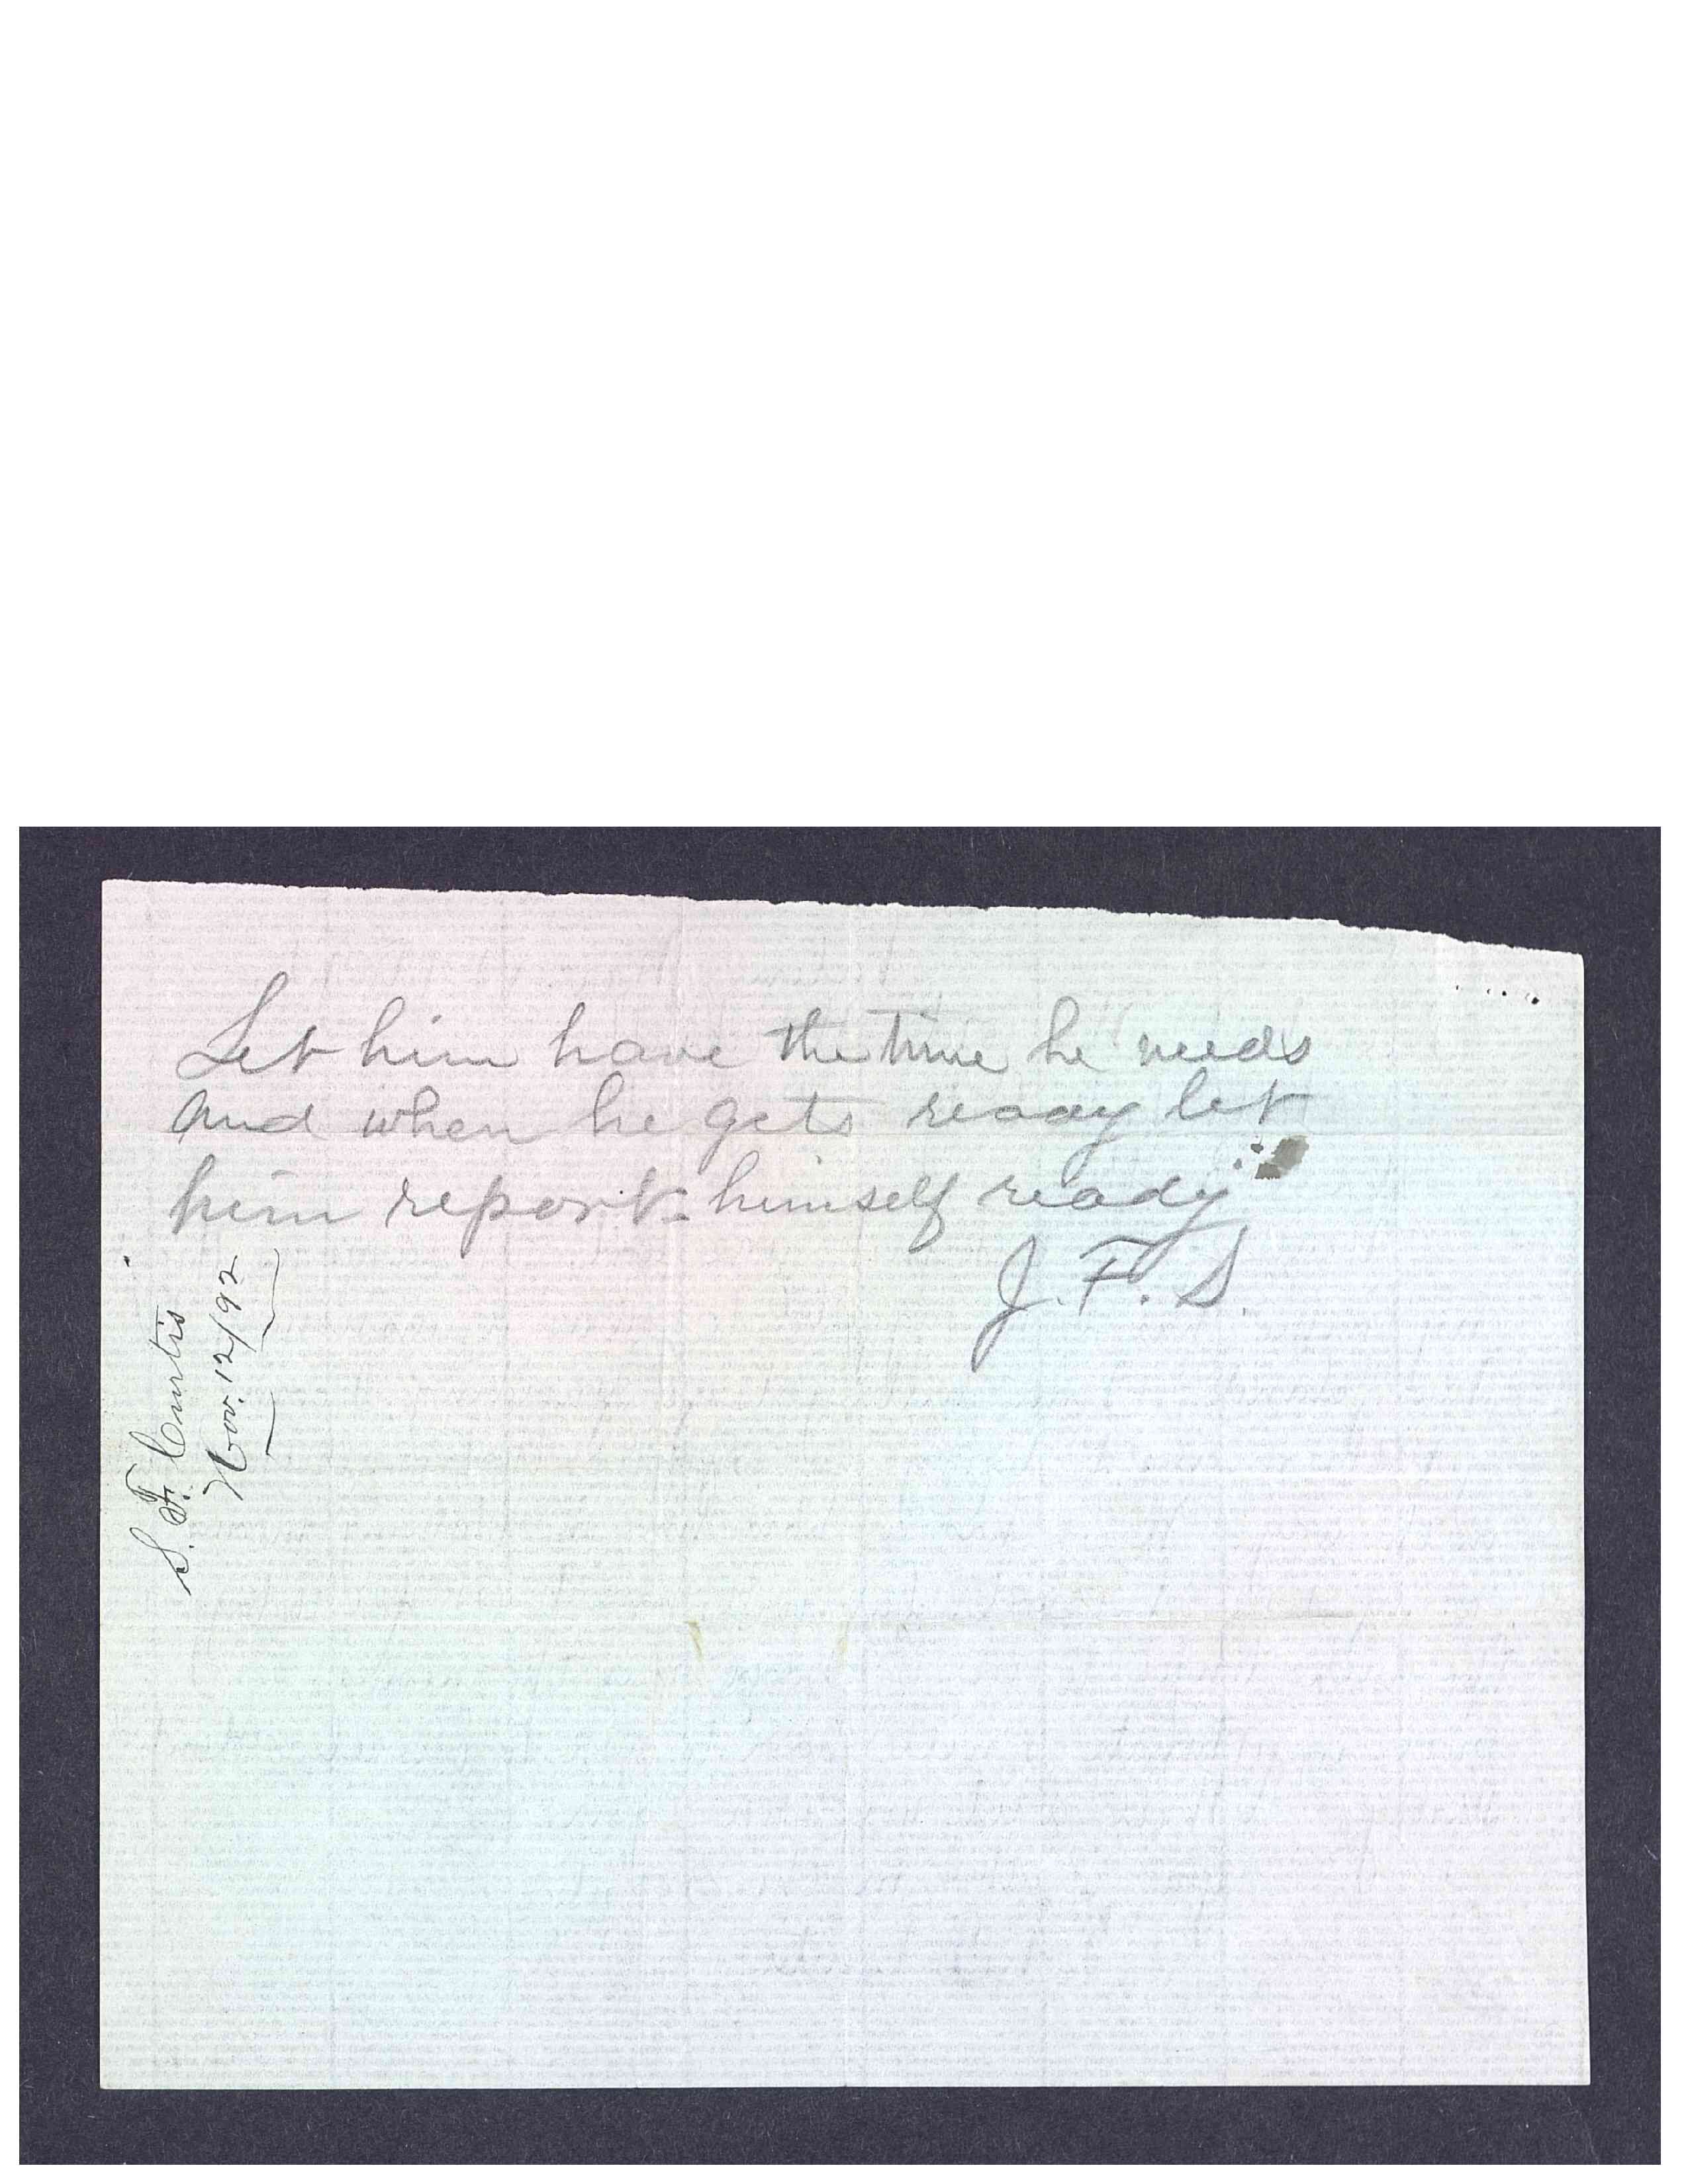 Let him have the time he needs
and when he gets ready let
him report himself ready
J. F. S.
S. F. Curtis
Nov. 12/92